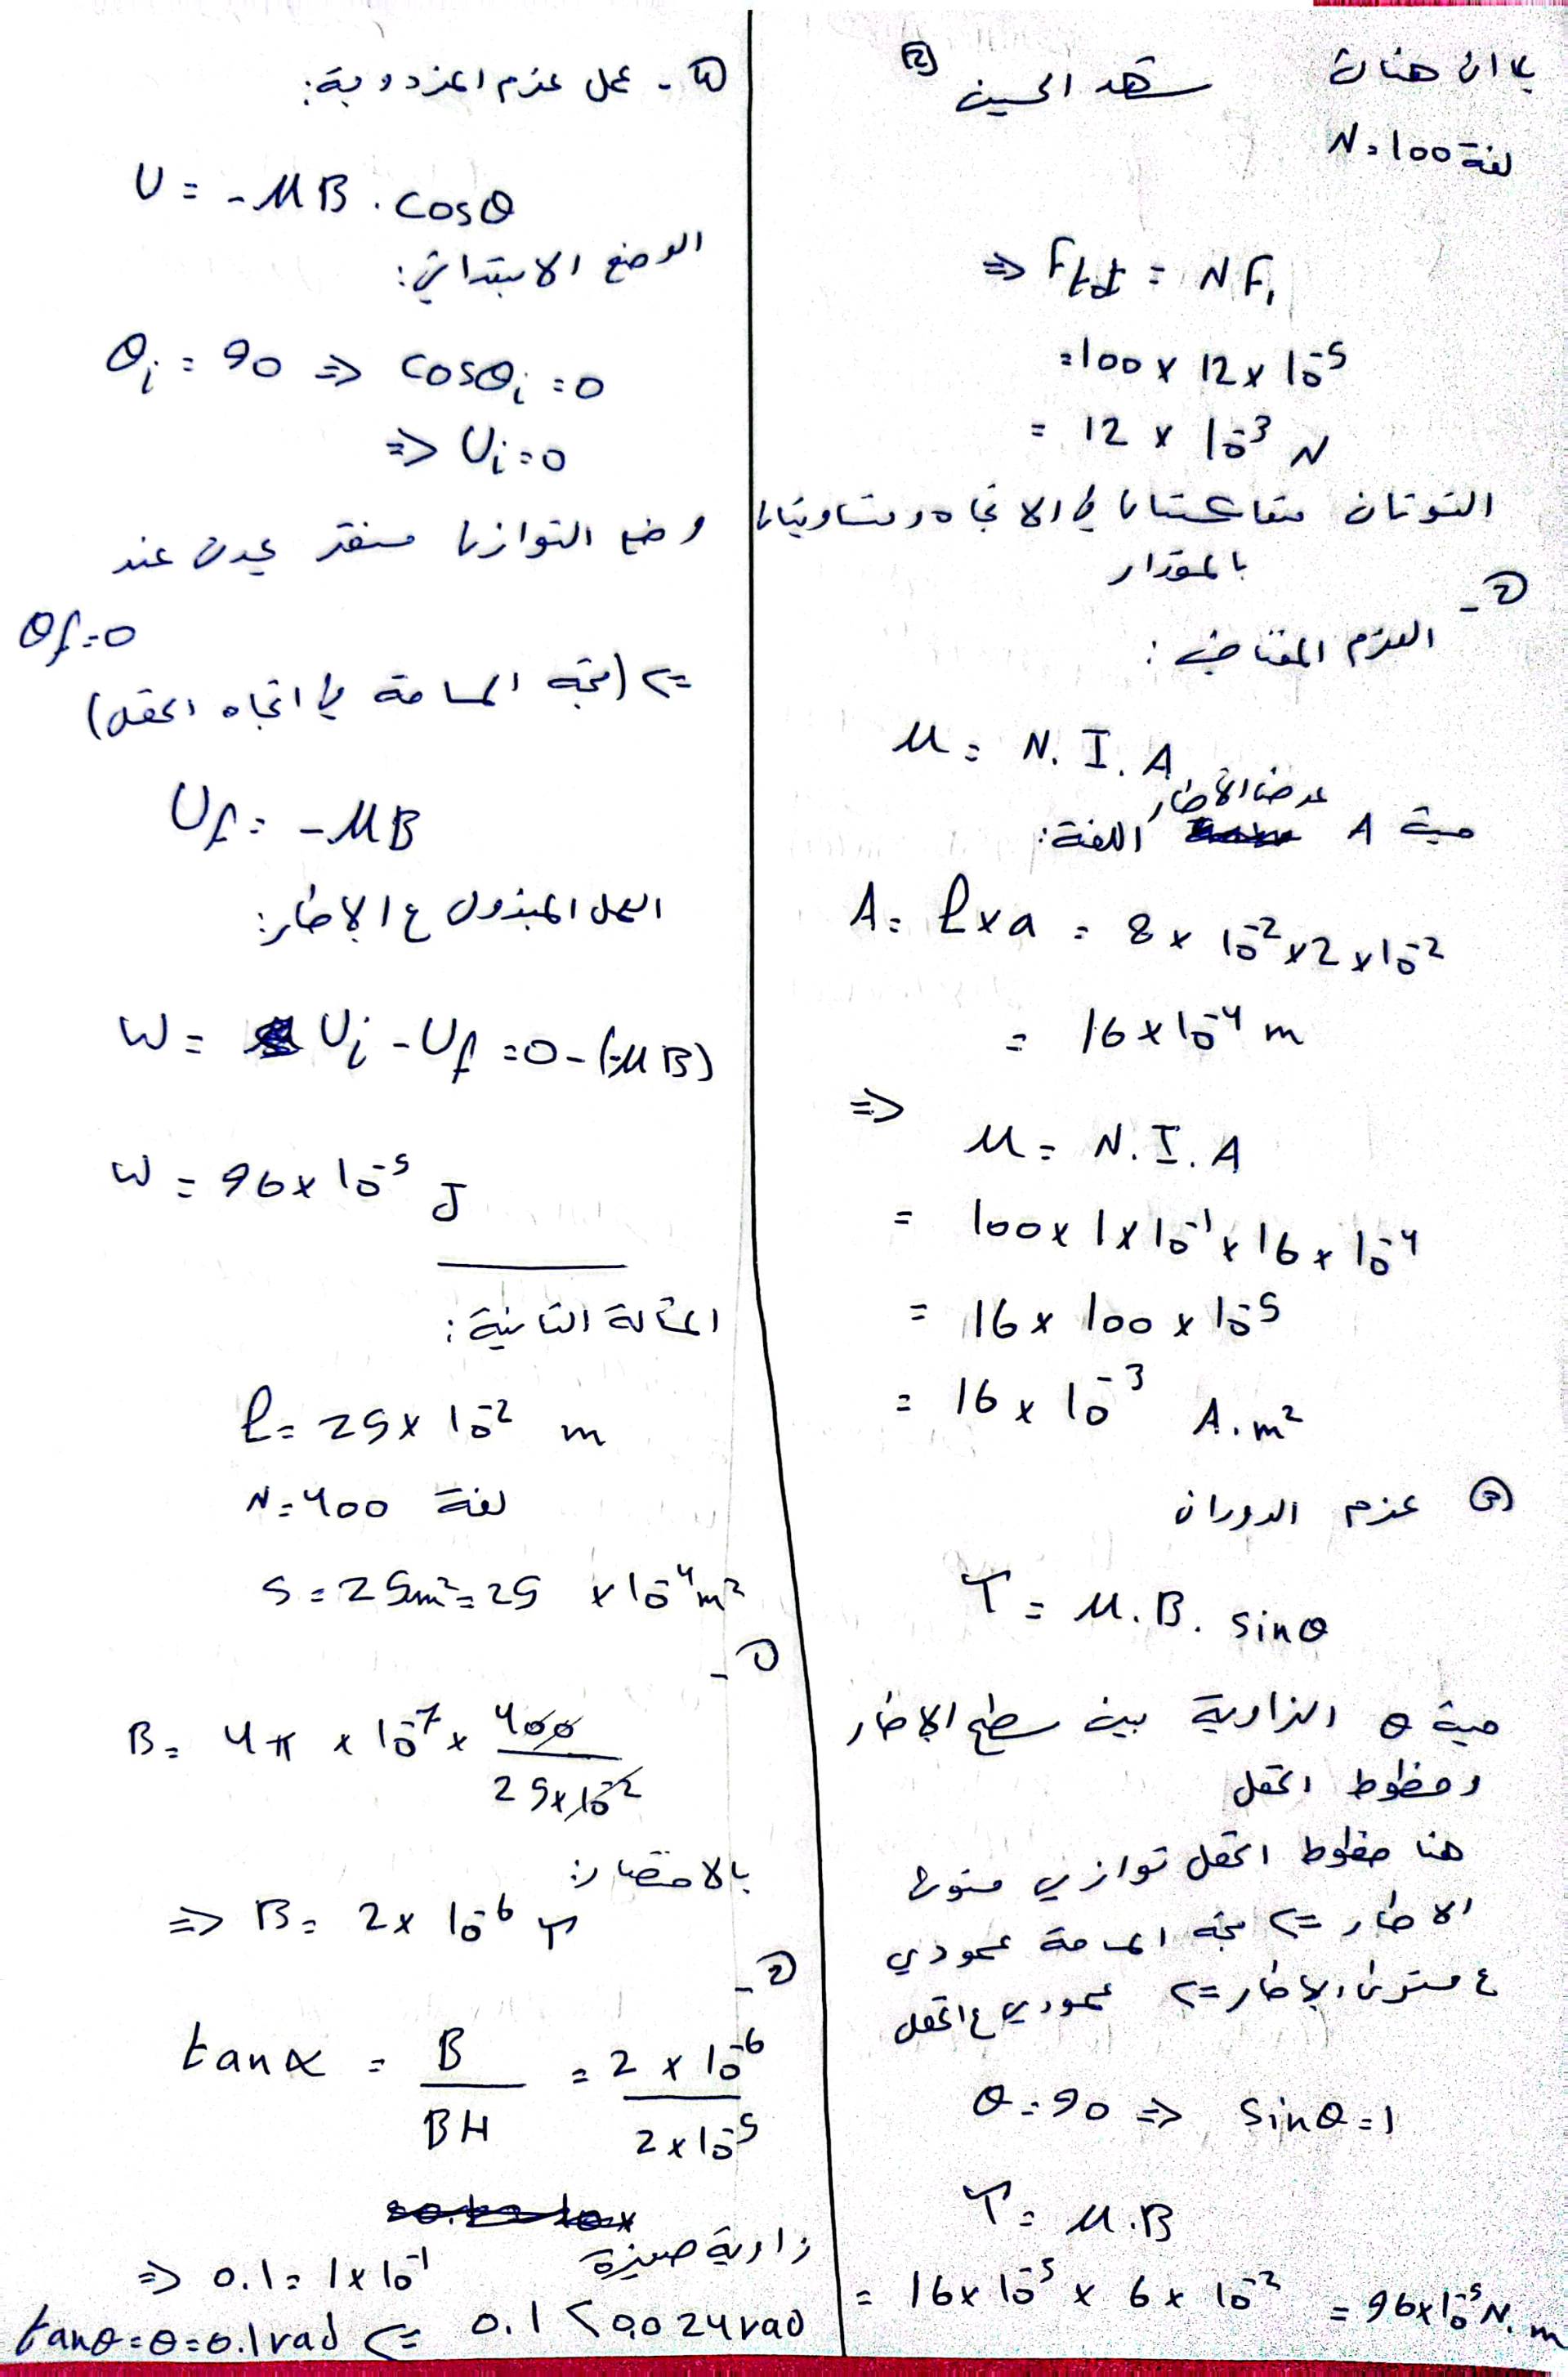 بما ان هنالك شهد الحسين (2)
N=100 لفة
⇒ Ftot = N F1
=100 x 12 x 10^-5
= 12 x 10^-3 N
القوتان متعاكستان في الاتجاه ومتساويتان
بالمقدار
2-
العزم المغناطيسي :
M = N. I. A
عرض الإطار
حيث A اللفة:
A = l x a = 8 x 10^-2 x 2 x 10^-2
= 16 x 10^-4 m
⇒
M = N. I. A
= 100 x 1 x 10^-1 x 16 x 10^-4
= 16 x 100 x 10^-5
= 16 x 10^-3 A.m²
3 عزم الدوران
T = M. B. sinθ
حيث θ الزاوية بين سطح الإطار
وخطوط الحقل
هنا خطوط الحقل توازي مستوى
الاطار ⇐ متجه المساحة عمودي
ع مستوى الإطار ⇐ عمودي ع الحقل
θ = 90 ⇒ sinθ = 1
T = M.B
= 16 x 10^-3 x 6 x 10^-2 = 96 x 10^-5 N.m
4- عمل عزم المزدوجة:
U = - M B . cosθ
الوضع الابتدائي:
θi = 90 ⇒ cosθi = 0
⇒ Ui = 0
وضع التوازن مستقر يحدث عند
θf = 0
⇐ (متجه المساحة في اتجاه الحقل)
Uf = - M B
العمل المبذول ع الإطار:
W = Ui - Uf = 0 - (-M B)
W = 96 x 10^-5 J
المسألة الثانية :
l = 25 x 10^-2 m
N = 400 لفة
S = 25cm² = 25 x 10^-4 m²
1-
B = 4π x 10^-7 x 400 / 25 x 10^-2
بالاختصار:
⇒ B = 2 x 10^-6 T
2-
tanα = B / BH = 2 x 10^-6 / 2 x 10^-5
زاوية صغيرة
⇒ 0.1 = 1 x 10^-1
tanθ = θ = 0.1 rad ⇐ 0.1 < 0.024 rad